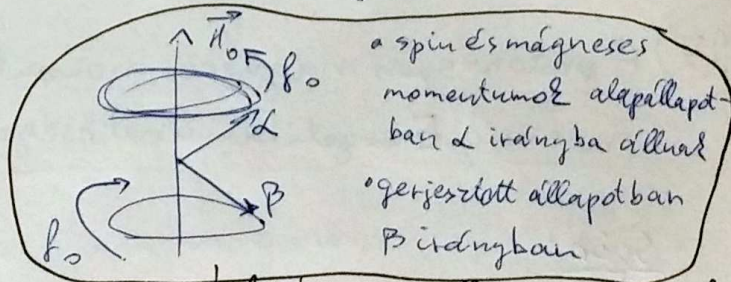 H₀
f₀
α
β
f₀
• spin és mágneses
momentumok alapállapot-
ban α irányba állnak
• gerjesztett állapotban
β irányban